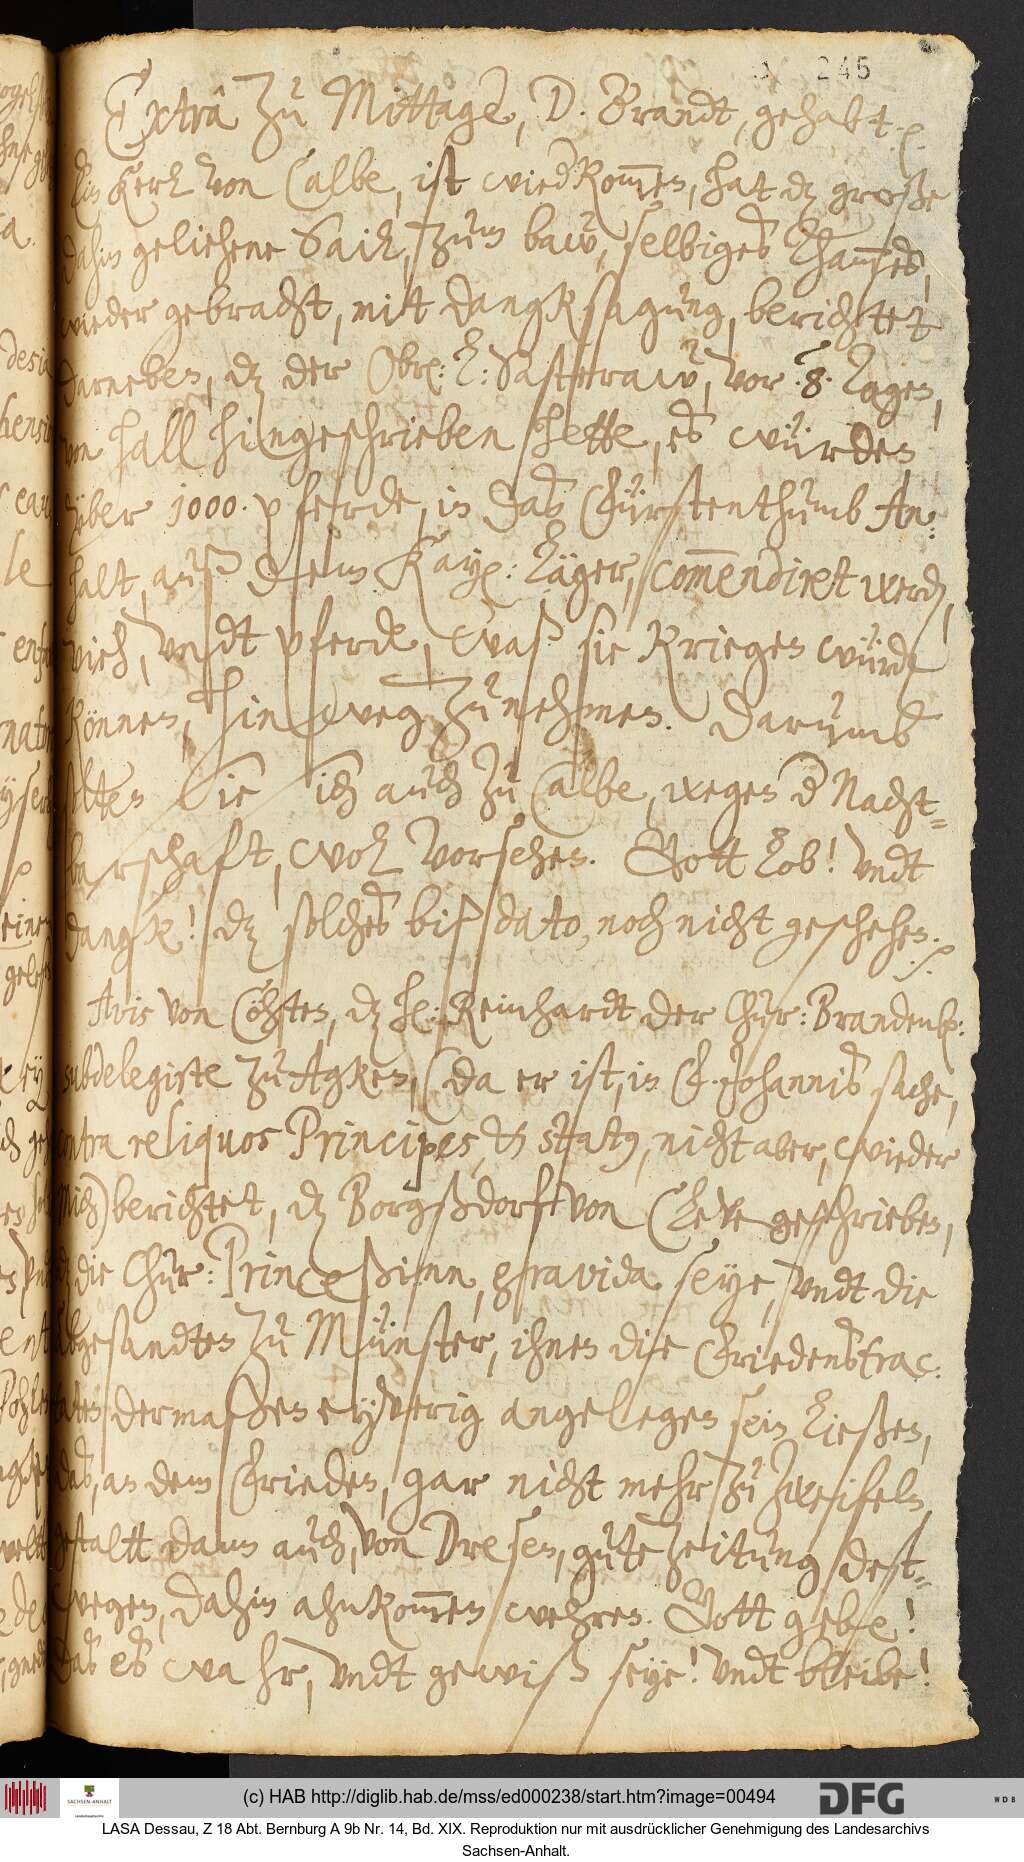 245
Extrâ zu Mittage, D. Brandt, gehabt.
Ein Kerl von Calbe, ist wied kom̅en, hat dz große
dahin geliehene Sail, zum baw, selbiges Thammes,
wieder gebracht, mit dangksagung, berichtet
darneben, dz der Obr: L: Saste rawẅ, vor .8. Tagen,
von Hall hingeschrieben hette, es würden
über 1000. pferde, in das Fürstenthumb An:
halt, auß dem Kay: Läger, com̅endirt werd,
vieh, vndt pferde, waß sie kriegen würde
können, hinweg zunehmen. Darumb
sollten Sie sich auch zu Calbe, wegen d Nacht=
barschaft, wol vorsehen. Gott Lob! vndt
dangk! dz solches biß dato, noch nicht geschehen.
Avis von Cöhten, dz H: Reinhardt der Chur: Brandenb:
subdelegirte zu Agken, (da er ist, in F. Johannis sache,
contra reliquos Principes, & statq, nicht aber, wieder
Mich) berichtet, dz Borgßdorf von Cleve geschrieben,
dz die Chur: Princeßinn, gravida seye, vndt die
Abgesandten zu Münster, ihnen die Friedenstrac:
taten dermaßen eyverig angelegen sein ließen,
das, an dem Frieden, gar nicht mehr zu zweifeln,
gestaltt dann auch, von Dresen, gute zeitung dest=
wegen, dahin ahnkom̅en wehren. Gott gebe!
das es wahr, vndt gewiß seye! vndt bleibe!
SACHSEN-ANHALT
(c) HAB http://diglib.hab.de/mss/ed000238/start.htm?image=00494
DFG
WDB
LASA Dessau, Z 18 Abt. Bernburg A 9b Nr. 14, Bd. XIX. Reproduktion nur mit ausdrücklicher Genehmigung des Landesarchivs
Sachsen-Anhalt.